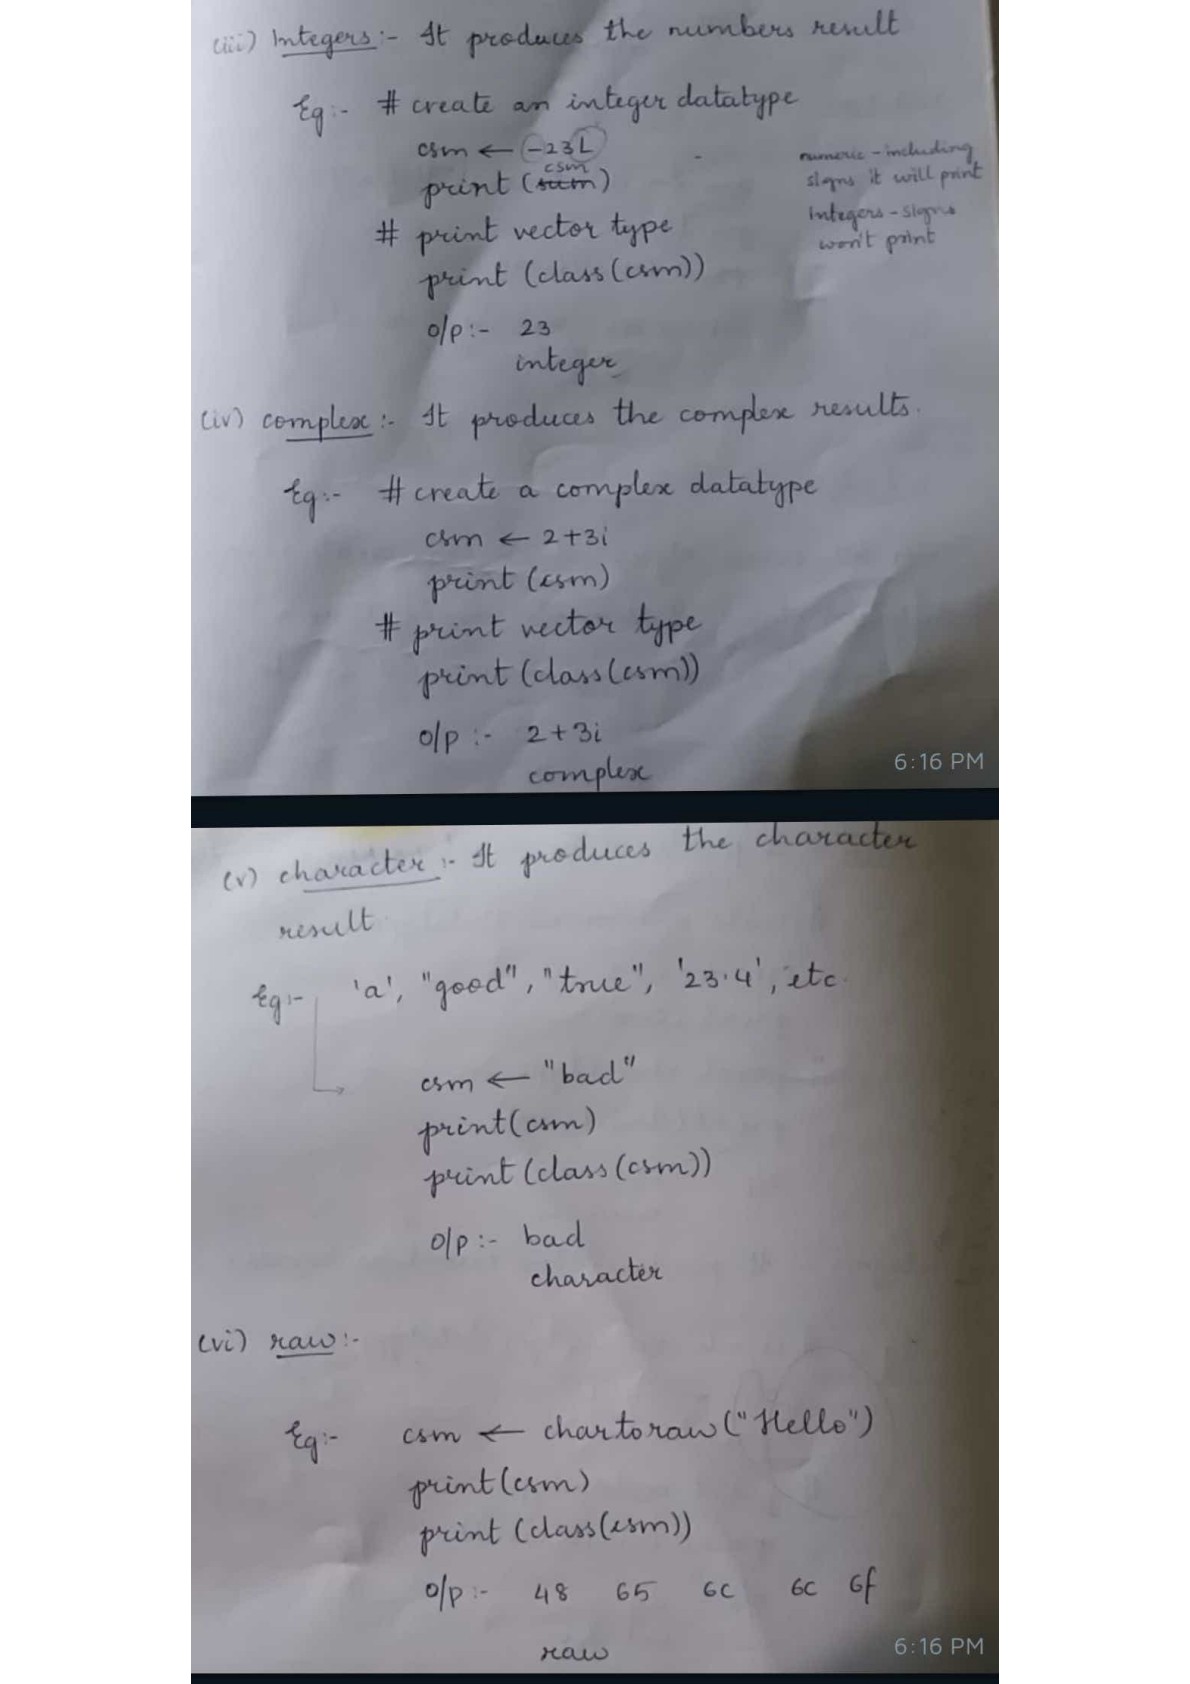 (iii) Integers :- It produces the numbers result
Eg :- # create an integer datatype
csm ← -23L
numeric - including
csm
print (
)
signs it will print
# print vector type
Integers - signs
won't print
print (class (csm))
o/p :- 23
integer
(iv) complex :- It produces the complex results.
Eg :- # create a complex datatype
csm ← 2+3i
print (csm)
# print vector type
print (class (csm))
o/p :- 2+3i
complex
6:16 PM
(v) character :- It produces the character
result
Eg :- 'a', "good", "true", '23.4', etc.
csm ← "bad"
print(csm)
print (class (csm))
o/p :- bad
character
(vi) raw :-
Eg :- csm ← chartoraw ("Hello")
print (csm)
print (class (csm))
o/p :- 48 65 6C 6C 6f
raw
6:16 PM